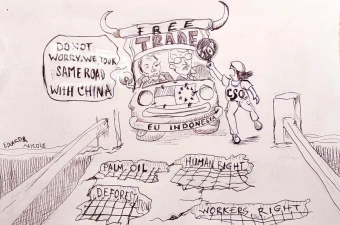 FREE
TRADE
DO NOT
WORRY, WE TOOK
SAME ROAD
WITH CHINA
CSO
EU INDONESIA
NICOLE
PALM OIL
HUMAN RIGHT
DEFORESTATION
WORKERS RIGHT